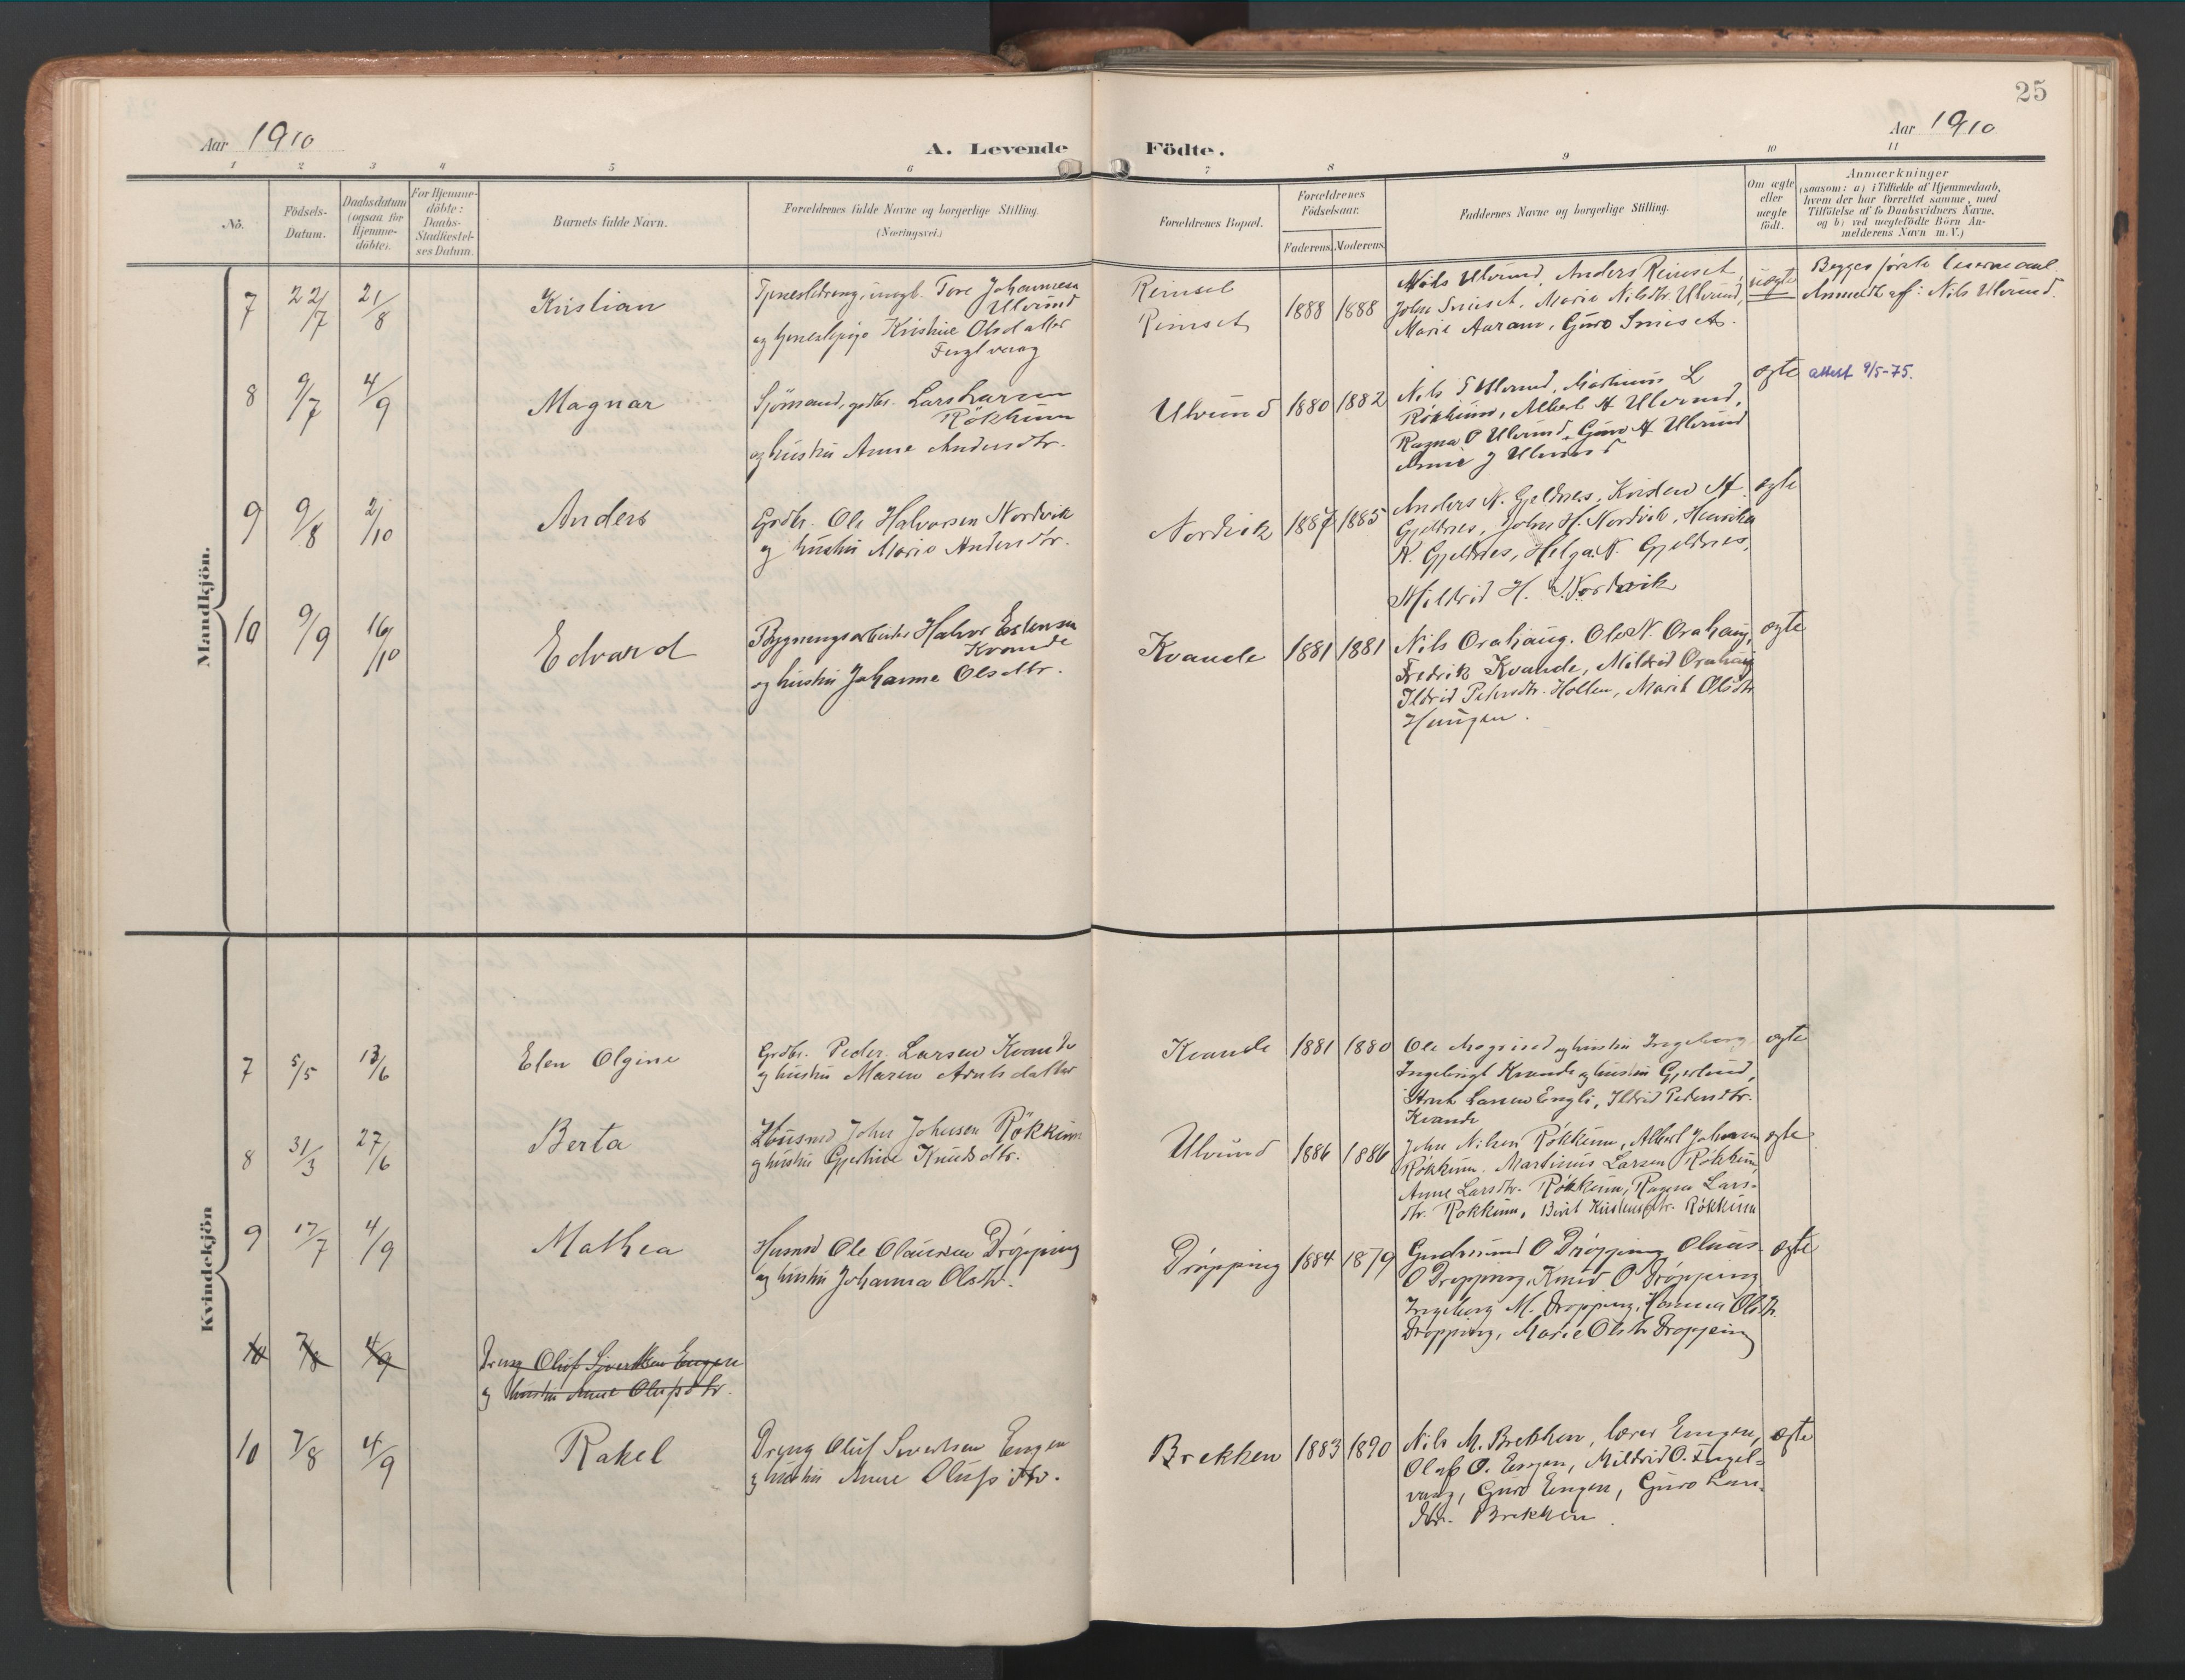 25
Aar 1910
A. Levende Födte.
Aar 1910
1 2 3 4 5 6 7 8 9 10 11
No.
Födsels-
Datum.
Daabsdatum
(ogsaa for
Hjemme-
döbte).
For Hjemme-
döbte:
Daabs-
Stadfæstel-
ses Datum.
Barnets fulde Navn.
Forældrenes fulde Navne og borgerlige Stilling.
(Næringsvei.)
Forældrenes Bopæl.
Forældrenes
Födselsaar.
Faderens. Moderens.
Faddernes Navne og borgerlige Stilling.
Om ægte
eller
uægte
födt.
Anmærkninger
(saasom: a) i Tilfælde af Hjemmedaab,
hvem der har forrettet samme, med
Tilföielse af to Daabsvidners Navne,
og b) ved uægtefödte Börn An-
melderens Navn m. V.)
Mandkjön.
7 22/7 21/8 Kristian
Tore Johannesen
Ulvund
og Kristine Olsdatter
Reinset
Reinset
1888 1888
Nils Ulvund, Anders Reinset,
John Snuset, Marie Nilsdtr. Ulvund,
Marie Auram, Guro Snuset.
uægte
Begges første
Anmeldt af: Nils Ulvund.
8 9/7 4/9 Magnar
Sjömand, grdbr. Lars Larsen
Rökkum
og hustru Anne Andersdtr.
Ulvund 1880 1882
Nils T Ulvund, Martinus L
Rökkum, Albert A Ulvund,
Ragna O Ulvund, Guro A Ulvund
J Ulvund
ægte
attest 9/5-75.
9 9/8 2/10 Anders
Grdbr. Ole Halvorsen Nordvik
og hustru Marie Andersdtr.
Nordvik 1887 1885
Anders N. Gjeldnes, Kristen A
Gjeldnes, John H. Nordvik, Henrika
K. Gjeldnes, Helga N. Gjeldnes,
Mildrid H. Nordvik
ægte
10 9/9 16/10 Edvard
Bygningsarbeider Halvor Estensen
Kvande
og hustru Johanne Olsdtr.
Kvande 1881 1881
Nils Orahaug, Ole N. Orahaug,
Fredrik Kvande, Mildrid Orahaug
Ildrid Petersdtr. Hollen, Marit Olsdtr
Haugen.
ægte
Kvindekjön
7 5/5 13/6 Elen Olgine
Grdbr. Peder Larsen Kvande
og hustru Maren Arntsdatter
Kvande 1881 1880
Ole Mogstad og hustru Ingeborg
Ingebrigt Kvande og hustru Gjertrud,
Arnt Larsen Engli, Ildrid Pedersdtr.
Kvande
ægte
8 31/3 27/6 Berta
Husmd John Johnsen Rökkum
og hustru Gjertine Knudsdtr.
Ulvund 1886 1886
John Nilsen Rökkum, Albert Johnsen
Rökkum, Martinus Larsen Rökkum,
Anne Larsdtr. Rökkum, Ragna Lars-
dtr. Rökkum, Berit Kristensdtr. Rökkum
ægte
9 17/7 4/9 Mathea
Husmd Ole Olaussen Dröpping
og hustru Johanna Olsdtr.
Dröpping 1884 1879
Gudmund O Dröpping, Olaus
O Dröpping, Knud O Dröpping
Ingeborg M. Dröpping, Hanna Olsdtr.
Dröpping, Marie Olsdtr Dröpping
ægte
10 7/8 4/9
Dreng Oluf Sivertsen Engen
og hustru Anne Olufsdtr.
10 7/8 4/9 Rakel
Dreng Oluf Sivertsen Engen
og hustru Anne Olufsdtr.
Brekken 1883 1890
Nils M. Brekken, lærer Engen,
Oluf O. Engen, Mildrid O. Fugel-
vaag, Guro Engen, Guro Lars-
dtr. Brekken.
ægte